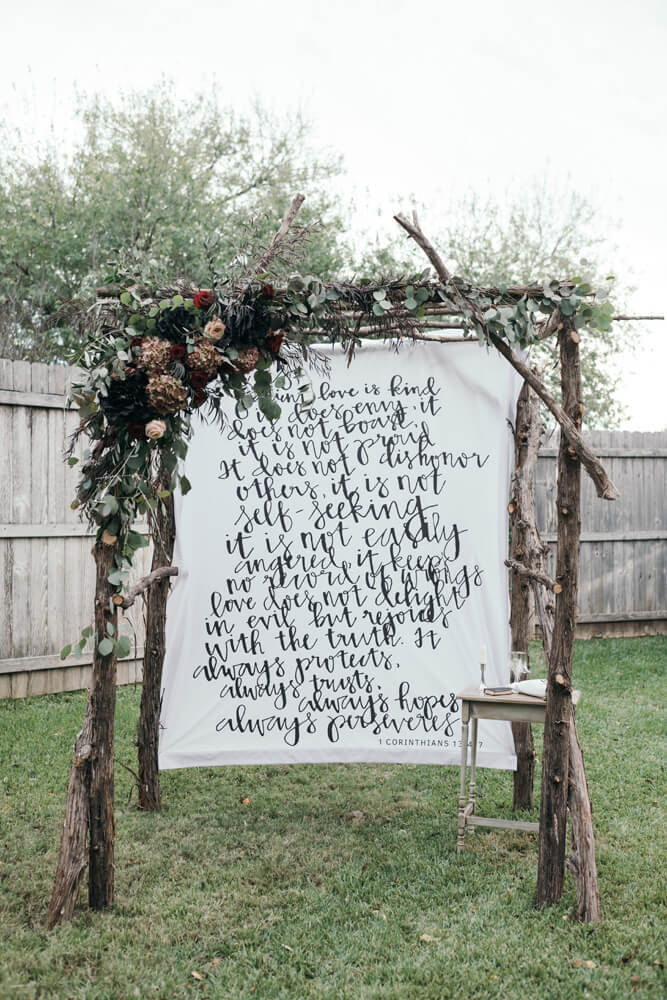 love is kind
does envy, it
does not boast,
it is not proud
It does not dishonor
others, it is not
self-seeking
it is not easily
angered, it keeps
no record of wrongs
love does not delight
in evil but rejoices
with the truth. It
always protects,
always trusts,
always hopes
always perseveres
1 CORINTHIANS 13:4-7